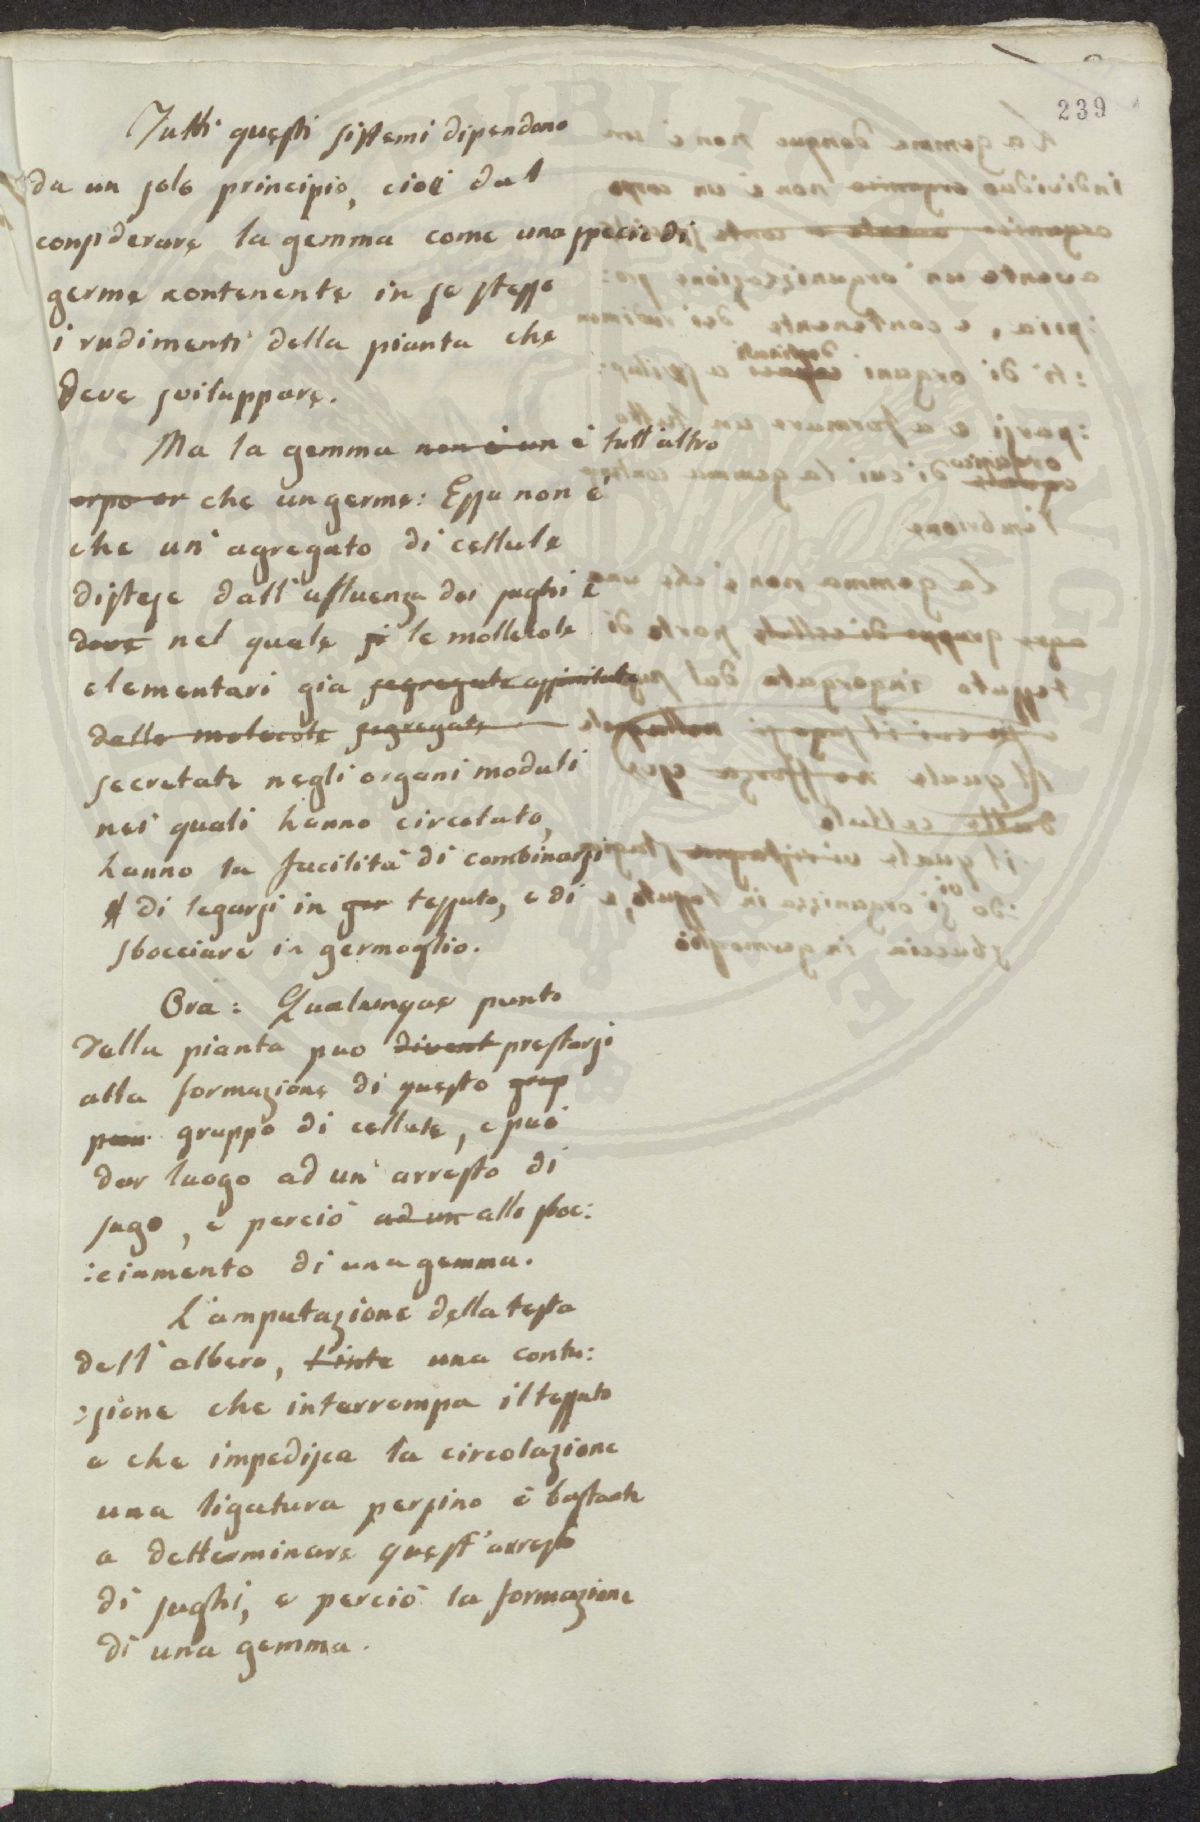 239
Tutti questi sistemi dipendono
da un solo principio, cioè dal
considerare la gemma come una specie di
germe contenente in se stesso
i rudimenti della pianta che
deve sviluppare.
Ma la gemma non è un è tutt'altro
orpo or che un germe: Essa non è
che un' agregato di cellule
distese dall'affluenza dei sughi e
dove nel quale si le mollecole
elementari gia segregate assimilate
dalle molecole segregate
secretate negli organi moduli
nei quali hanno circolato,
hanno la facilità di combinarsi
di legarsi in ger tessuto, e di
sbocciare in germoglio.
Ora: Qualunque punto
della pianta puo divent prestarsi
alla formazione di questo grup
gruppo di cellule, e può
dar luogo ad un' arresto di
sugo, e perciò ad un allo sboc:
:ciamento di una gemma.
L'amputazione della testa
dell'albero, una contu:
:sione che interrompa il tessuto
e che impedisca la circolazione
una ligatura persino è bastante
a detterminare quest'arresto
di sughi, e perciò la formazione
di una gemma.